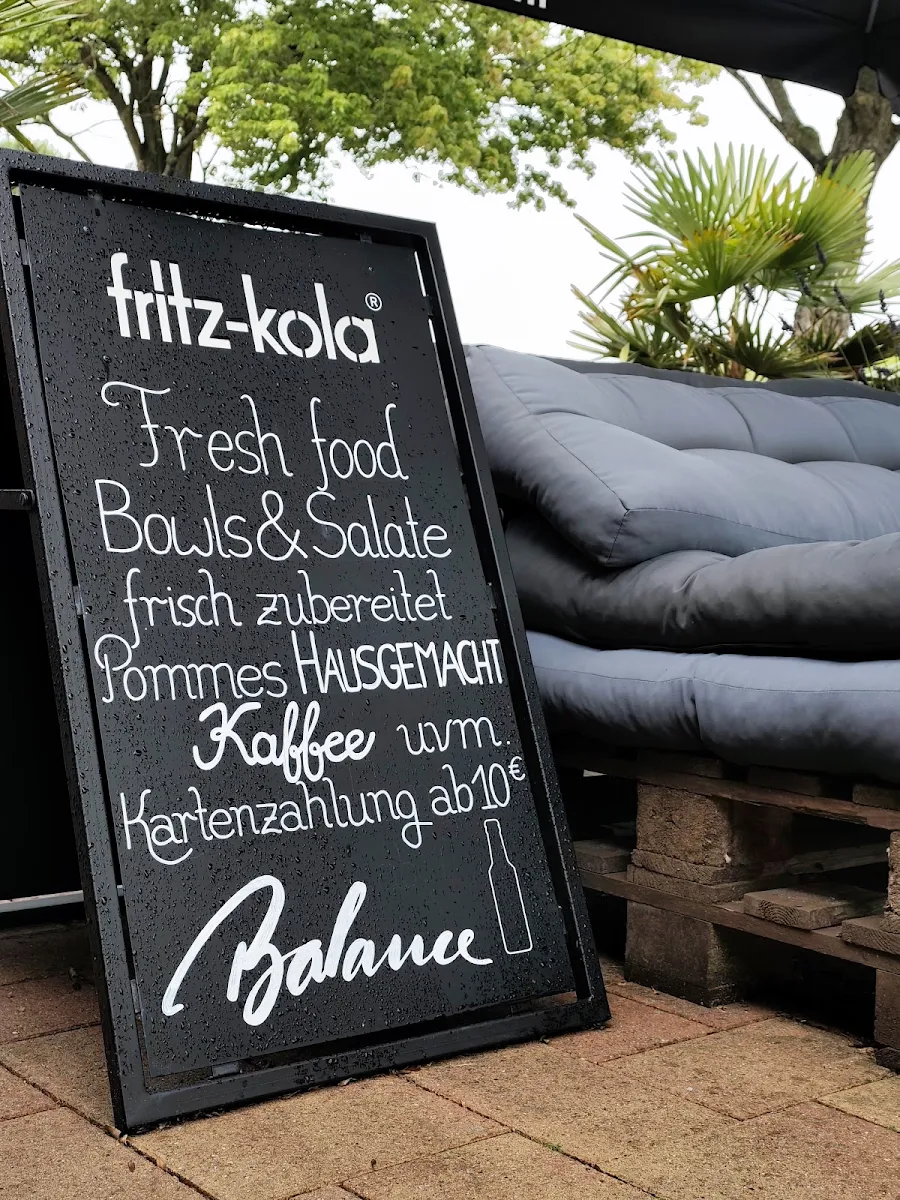 fritz-kola®
Fresh food
Bowls & Salate
frisch zubereitet
Pommes HAUSGEMACHT
Kaffee uvm.
Kartenzahlung ab 10€
Balance